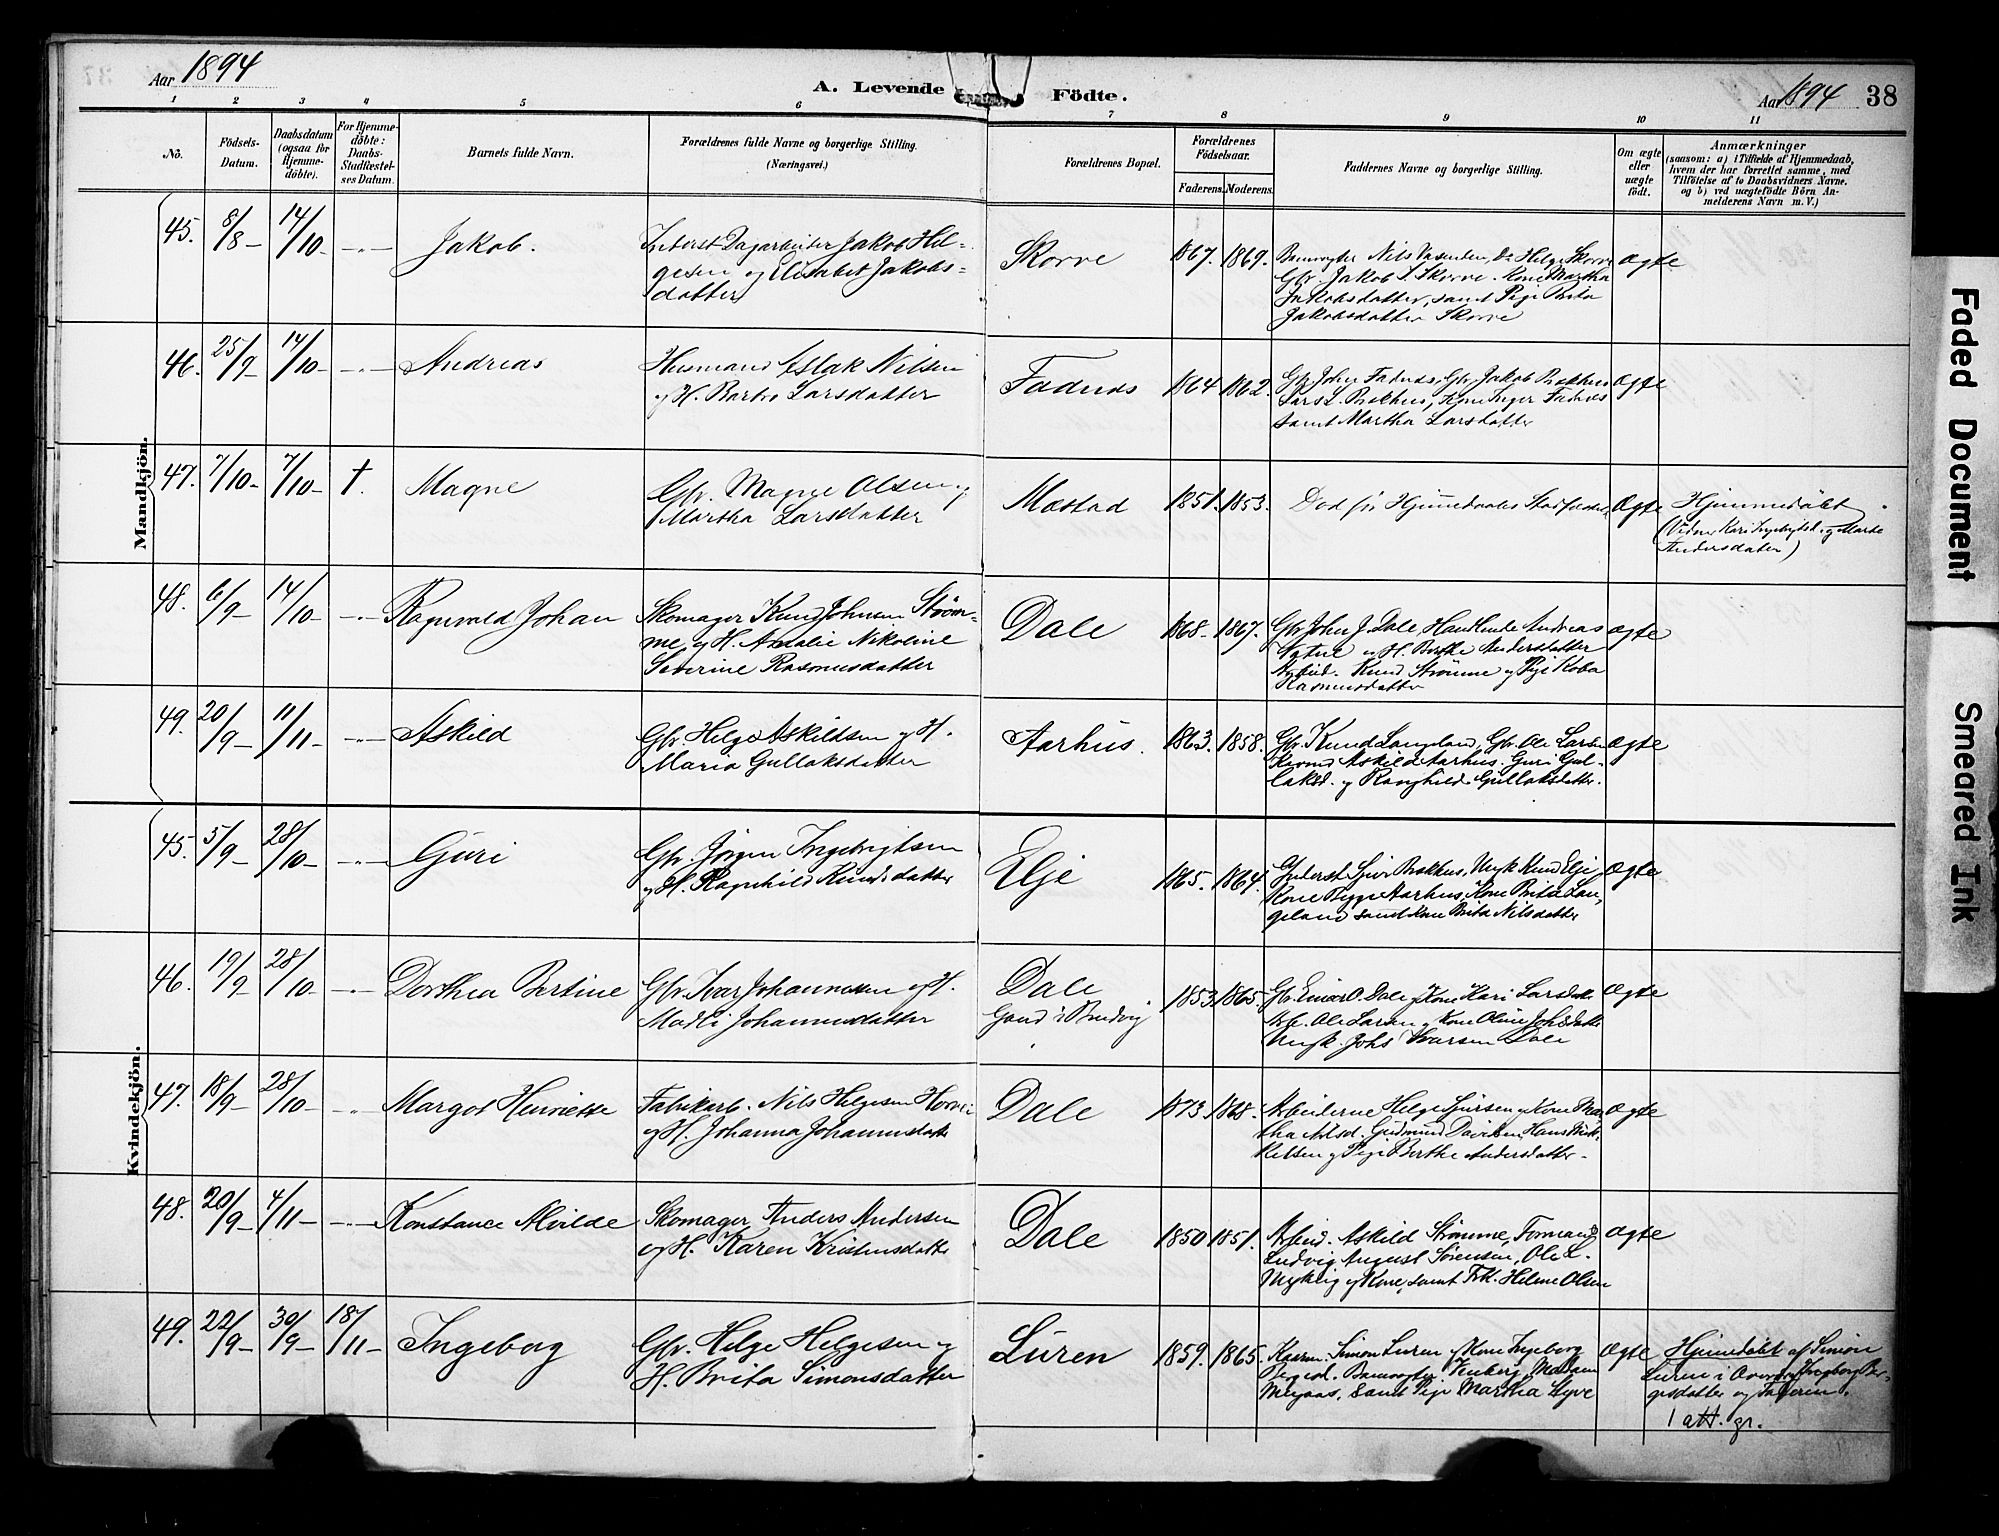 Aar 1894
A. Levende Födte.
Aar 1894 38
1 2 3 4 5 6 7 8 9 10 11
No.
Födsels-
Datum.
Daabsdatum
(ogsaa for
Hjemme-
döbte).
For Hjemme-
döbte:
Daabs-
Stadfæstel-
ses Datum.
Barnets fulde Navn.
Forældrenes fulde Navne og borgerlige Stilling.
(Næringsvei.)
Forældrenes Bopæl.
Forældrenes
Födselsaar.
Faderens. Moderens.
Faddernes Navne og borgerlige Stilling.
Om ægte
eller
uægte
födt.
Anmærkninger
(saasom: a) i Tilfælde af Hjemmedaab,
hvem der har forrettet samme, med
Tilföielse af to Daabsvidners Navne.
og b) ved uægtefödte Börn An-
melderens Navn m. V.)
Mandkjön.
45. 8/8 14/10 Jakob.
Inderst Dagarbeider Jakob Hel-
gesen og Elisabet Jakobs-
datter
Skorve 1867. 1869.
Nils Helge Skorve
Gbr. Jakob S. Skorve. Kone Martha
Jakobsdatter, samt Pige Brita
Jakobsdatter Skorve
Ægte
46. 25/9 14/10 Andreas
Husmand Aslak Nilsen
og H. Barbro Larsdatter
Fadnes 1864 1862.
Gbr. Johs Fadnes, Gbr. Jakob Brekhus
Lars L. Brekhus, Kone Inger Fadnes
samt Martha Larsdatter
Ægte
47. 7/10 7/10 †. Magne
Gbr. Magne Olsen og
Martha Larsdatter
Mæstad 1851. 1853.
Död för Hjemmedaabs
Ægte
Hjemmedöbt
(Vidner Kari Ingebrigtsd. og Marta
Andersdatter)
48. 6/9 14/10 Ragnvald Johan
Skomager Knud Johnsen Ström-
me og H. Amalie Nikoline
Severine Rasmusdatter
Dale 1868. 1867.
Gbr John J. Dale, Handlende Andreas
og H. Berthe Andersdatter
Arbeid. Knud Strömme og Pige
Rasmusdatter
Ægte
49. 20/9 11/11 Askild
Gbr. Helge Askildsen og H.
Maria Gullaksdatter
Aarhus. 1863. 1858.
Gbr. Knud Langeland, Gbr. Ole Larsen
Askild Aarhus. Guri Gul-
laksd. og Ranghild Gullaksdatter.
Ægte
Kvindekjön.
45. 5/9 28/10 Guri
Gbr. Jörgen Ingebrigtsen
og H. Ragnhild Knudsdatter
Elje 1865. 1864.
Inderst Sjur Brekhus, Ungk Knud Elje
Kone Aarhus, Kone Brita Lan-
geland samt Kone Brita Nilsdatter
Ægte
46. 19/9 28/10 Dorthea Bertine
Gbr. Ivar Johannessen og H.
Madli Johannesdatter
Dale
1853. 1865.
Gbr. Einar O. Dale og Kone Kari Larsdtr.
Arb. Ole Larsen og Kone Oline Johsdatter
Ungk. Johs Ivarsen Dale
Ægte
47. 18/9 28/10 Margot Henriette
Fabrikarb. Nils Helgesen
og H. Johanna Johannesdatter
Dale 1873. 1868.
Arbeiderne Helge Sjursen og Kone Mar-
tha Nilsd. Gudmund Davidsen, Hans Mik-
kelsen og Pige Berthe Andersdatter.
Ægte
48. 20/9 4/11 Konstance Alvilde
Skomager Anders Andersen
og H. Karen Kristensdatter
Dale 1850 1851.
Arbeid. Askild Strömme, Formand
Ludvig August Sörensen, Ole L.
Myking og Kone, samt Frk. Helene Olsen
Ægte
49. 22/9 30/9 18/11 Ingeborg
Gbr. Helge Helgesen og
H. Brita Simonsdatter
Luren 1859. 1865.
Kaarm. Simon Luren og Kone Ingeborg
samt Pige Martha
Ægte
Hjemmedöbt af Simon
Luren i Overvær Ingeborg Bir-
gesdatter og Faderen.
1 att. gr.
Faded Document
Smeared Ink